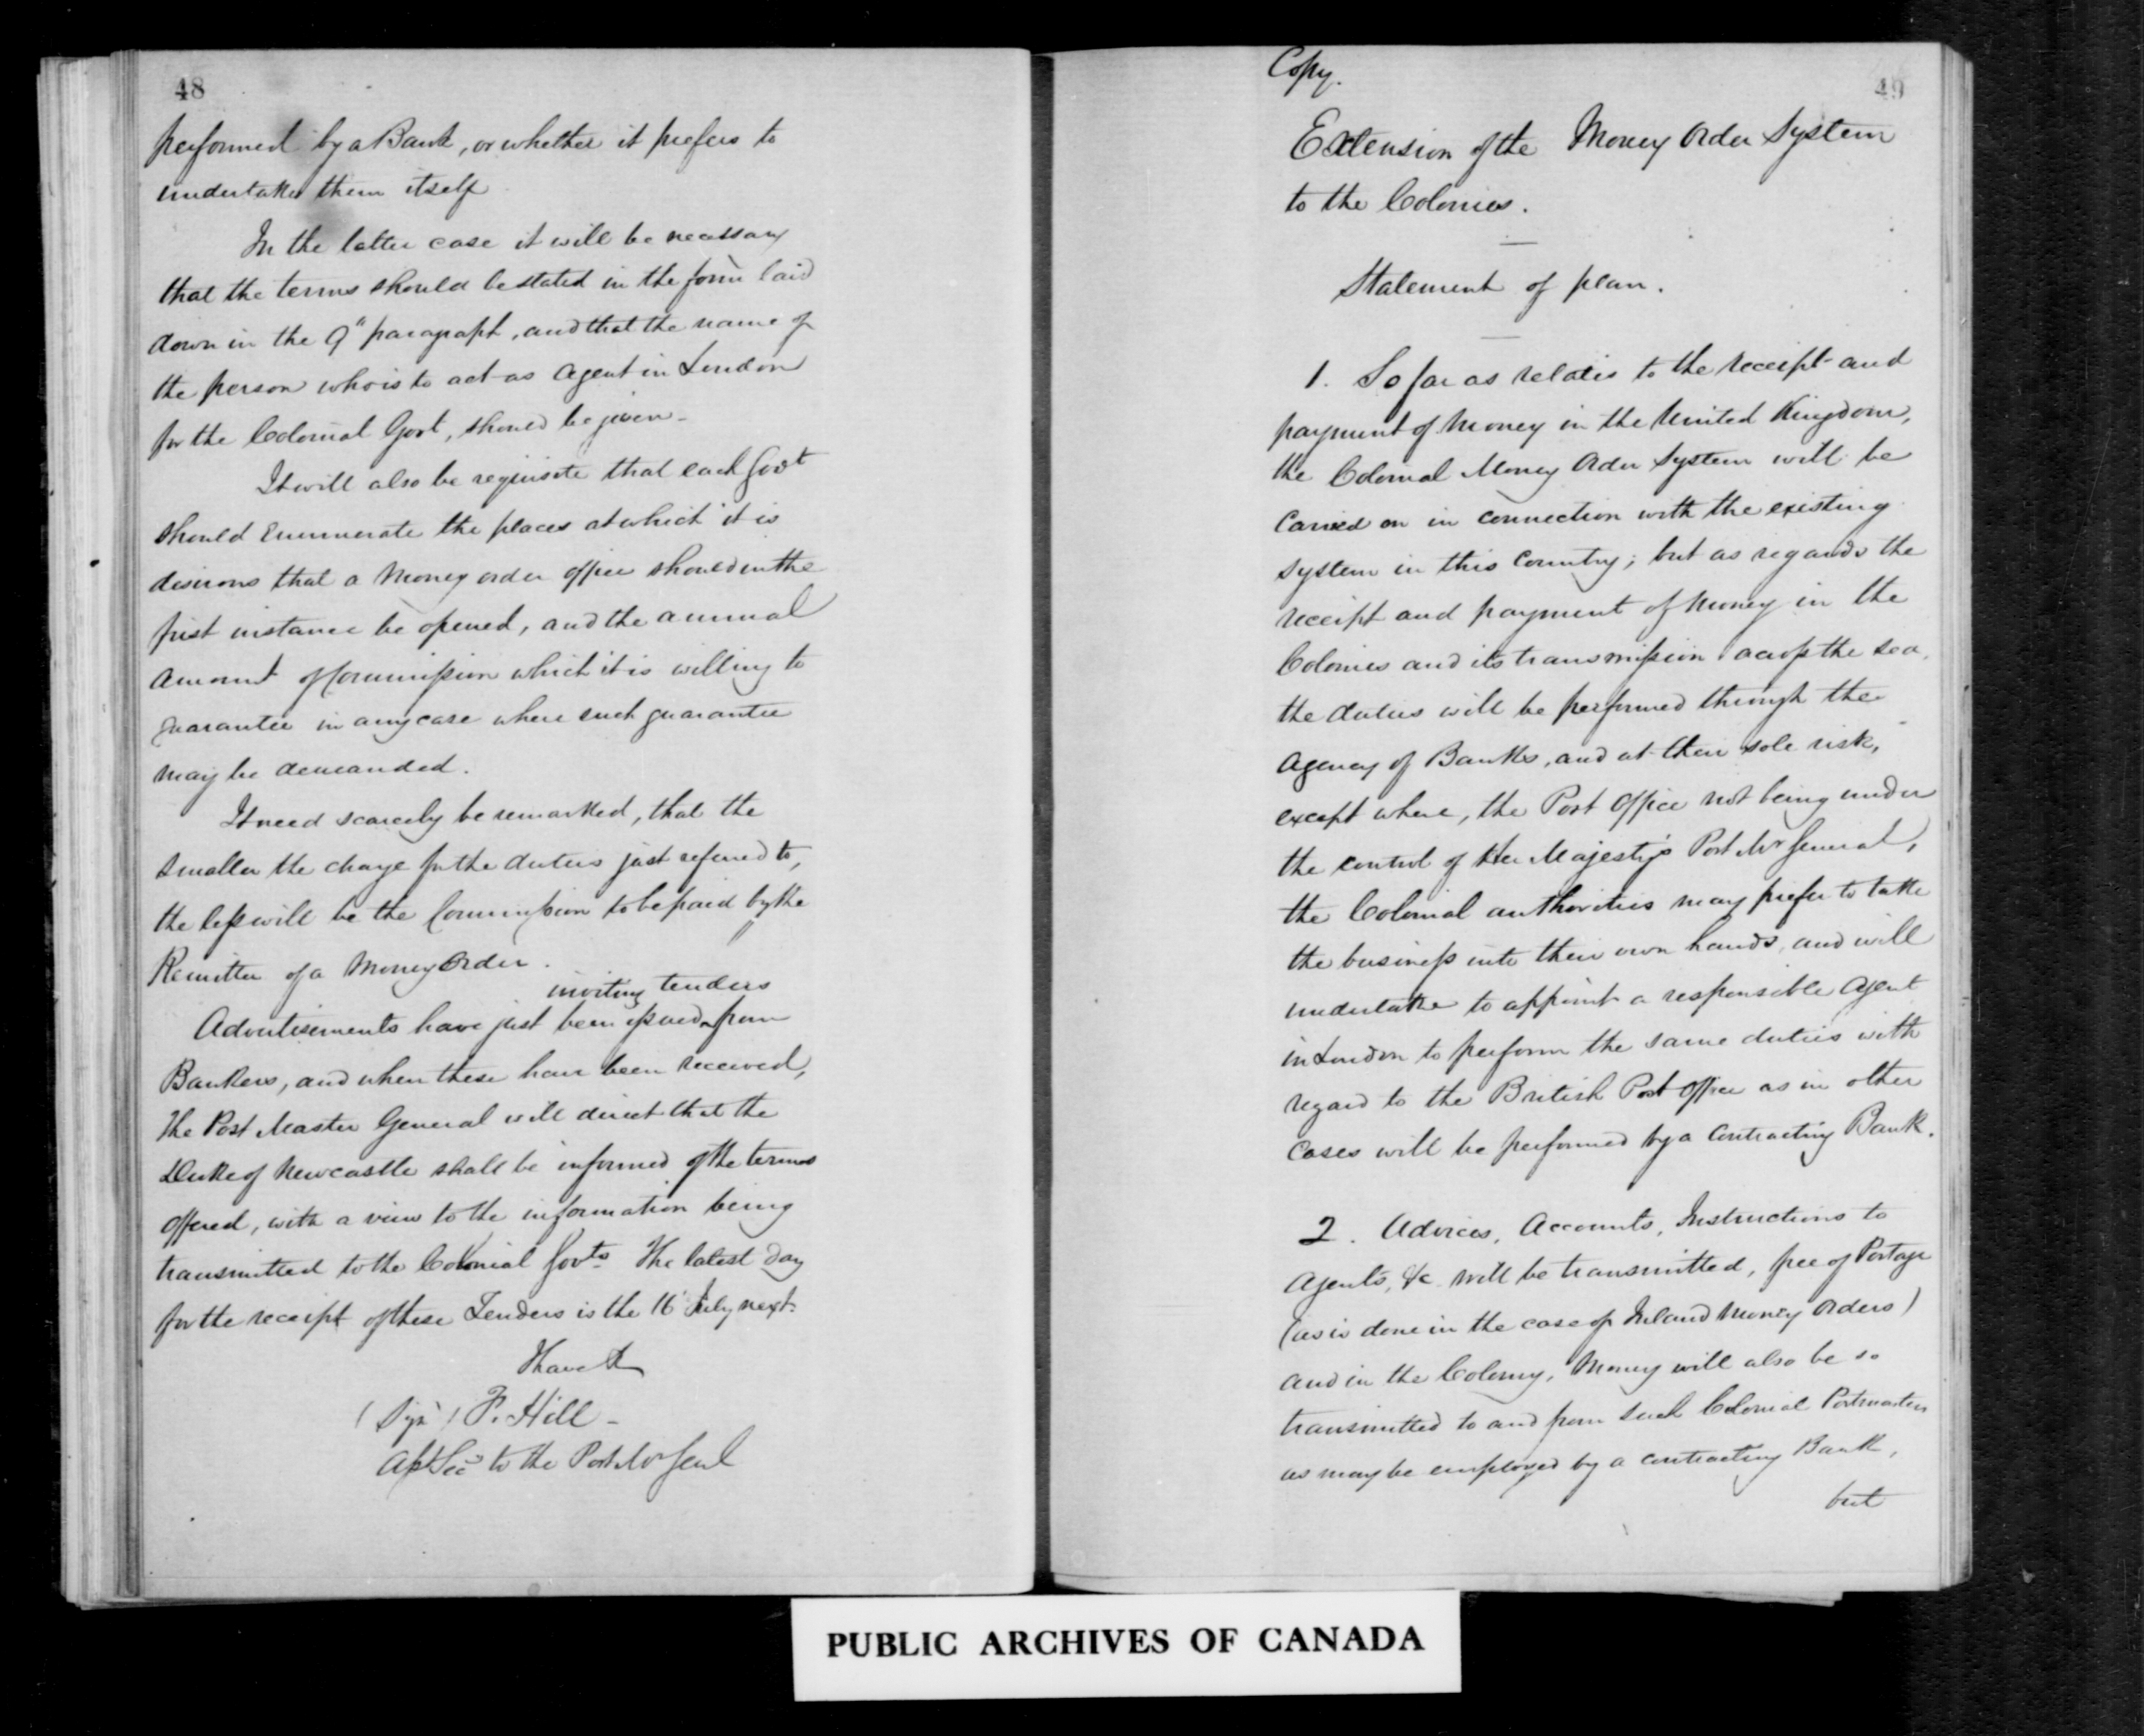 48
performed by a Bank, or whether it prefers to
undertake them itself
In the latter case it will be necessary
that the terms should be stated in the form laid
down in the 9" paragraph, and that the name of
the person who is to act as Agent in London
for the Colonial Govt, should be given -
It will also be requisite that each Govt
should enumerate the places at which it is
desirous that a Money order office should in the
first instance be opened, and the annual
amount of Commission which it is willing to
guarantee in any case where such guarantee
may be demanded.
It need scarcely be remarked, that the
smaller the charge for the duties just referred to,
the less will be the Commission to be paid by the
Remitter of a Money Order.
inviting tenders
Advertisements have just been issued from
Bankers, and when these have been received,
the Post Master General will direct that the
Duke of Newcastle shall be informed of the terms
offered, with a view to the information being
transmitted to the Colonial Govts. The latest day
for the receipt of these Tenders is the 16 July next.
I have &
(Sign) F. Hill -
Asst Sec to the Post Mr Genl
Copy.
49
Extension of the Money Order System
to the Colonies.
Statement of plan.
1. So far as relates to the receipt and
payment of Money in the United Kingdom,
the Colonial Money Order System will be
carried on in connection with the existing
system in this Country; but as regards the
receipt and payment of Money in the
Colonies and its transmission across the sea,
the duties will be performed through the
agency of Banks, and at their sole risk,
except where, the Post Office not being under
the control of Her Majesty's Post Mr General,
the Colonial authorities may prefer to take
the business into their own hands, and will
undertake to appoint a responsible Agent
in London to perform the same duties with
regard to the British Post Office as in other
cases will be performed by a Contracting Bank.
2. Advices, Accounts, Instructions to
Agents, &c will be transmitted, free of Postage
(as is done in the case of Inland Money Orders)
and in the Colony, Money will also be so
transmitted to and from such Colonial Postmasters
as may be employed by a contracting Bank,
but
PUBLIC ARCHIVES OF CANADA